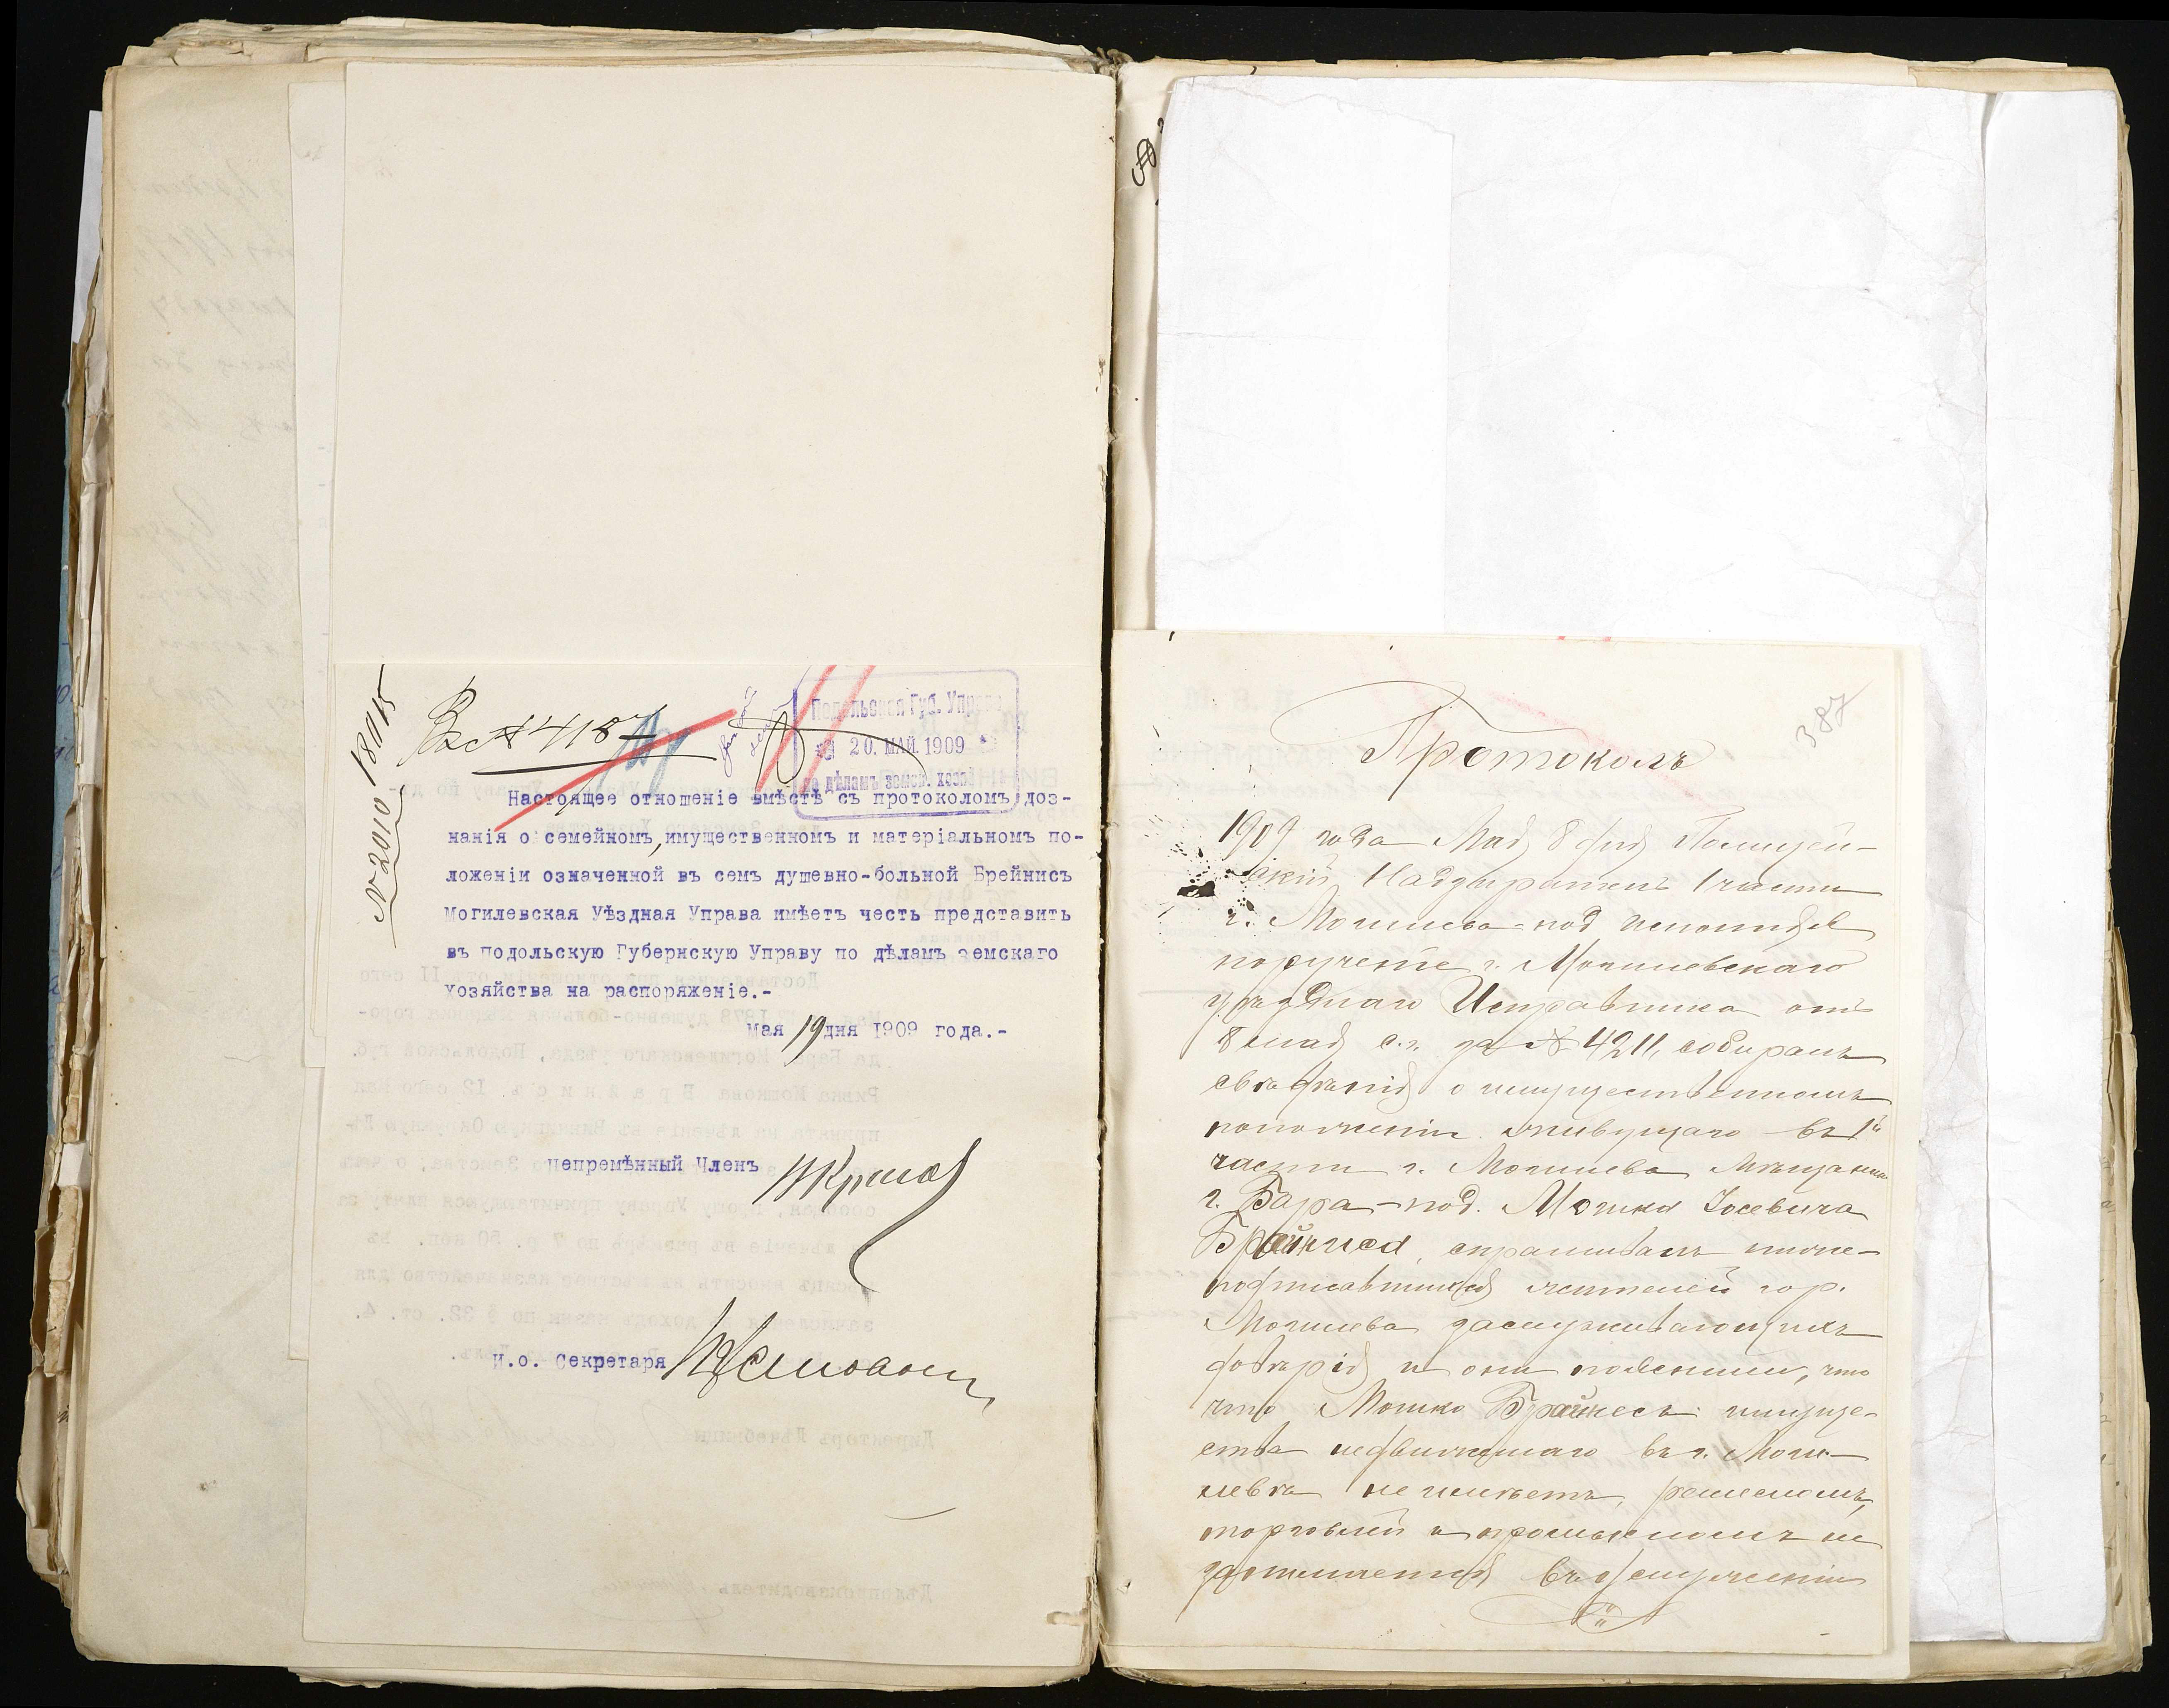 № 2010
18/V 15
Вх № 4187
Подольская Губ. Управа
20. МАЙ. 1909
по дѣламъ земск. хозяй
Настоящее отношеніе вмѣстѣ съ протоколомъ доз-
нанія о семейномъ, имущественномъ и матеріальномъ по-
ложеніи означенной въ семъ душевно-больной Брейнисъ
Могилевская Уѣздная Управа имѣетъ честь представить
въ подольскую Губернскую Управу по дѣламъ земскаго
хозяйства на распоряженіе.-
мая 19 дня 1909 года.-
непремѣнный Членъ
И.о. Секретаря
387
Протоколъ
1909 года Мая 8 дня Полицей-
скій Надзиратель 1 части
г. Могилева-под исполняя
порученіе г. Могилевскаго
уѣзднаго Исправника отъ
8 мая с.г. за № 4211, собиралъ
свѣдѣнія о имущественномъ
положеніи живущаго въ 1й
части г. Могилева Мѣщанина
г. Бара-под. Мошка Іосевича
Брайниса, спрашивалъ ниже-
подписавшихся жителей гор.
Могилева заслуживающихъ
довѣрія и они пояснили, что
что Мошко Брайнесъ имуще-
ства недвижимаго въ г. Моги-
левѣ не имѣетъ, ремесломъ,
торговлей и промысломъ не
занимается въ услуженіи